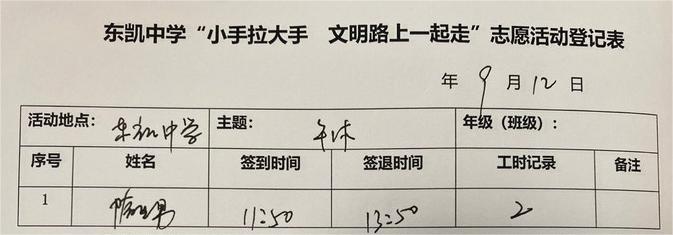 东凯中学“小手拉大手 文明路上一起走”志愿活动登记表
年 9 月 12 日
活动地点： 东凯中学 主题： 午休 年级（班级）：
序号 姓名 签到时间 签退时间 工时记录 备注
1 11:50 13:50 2